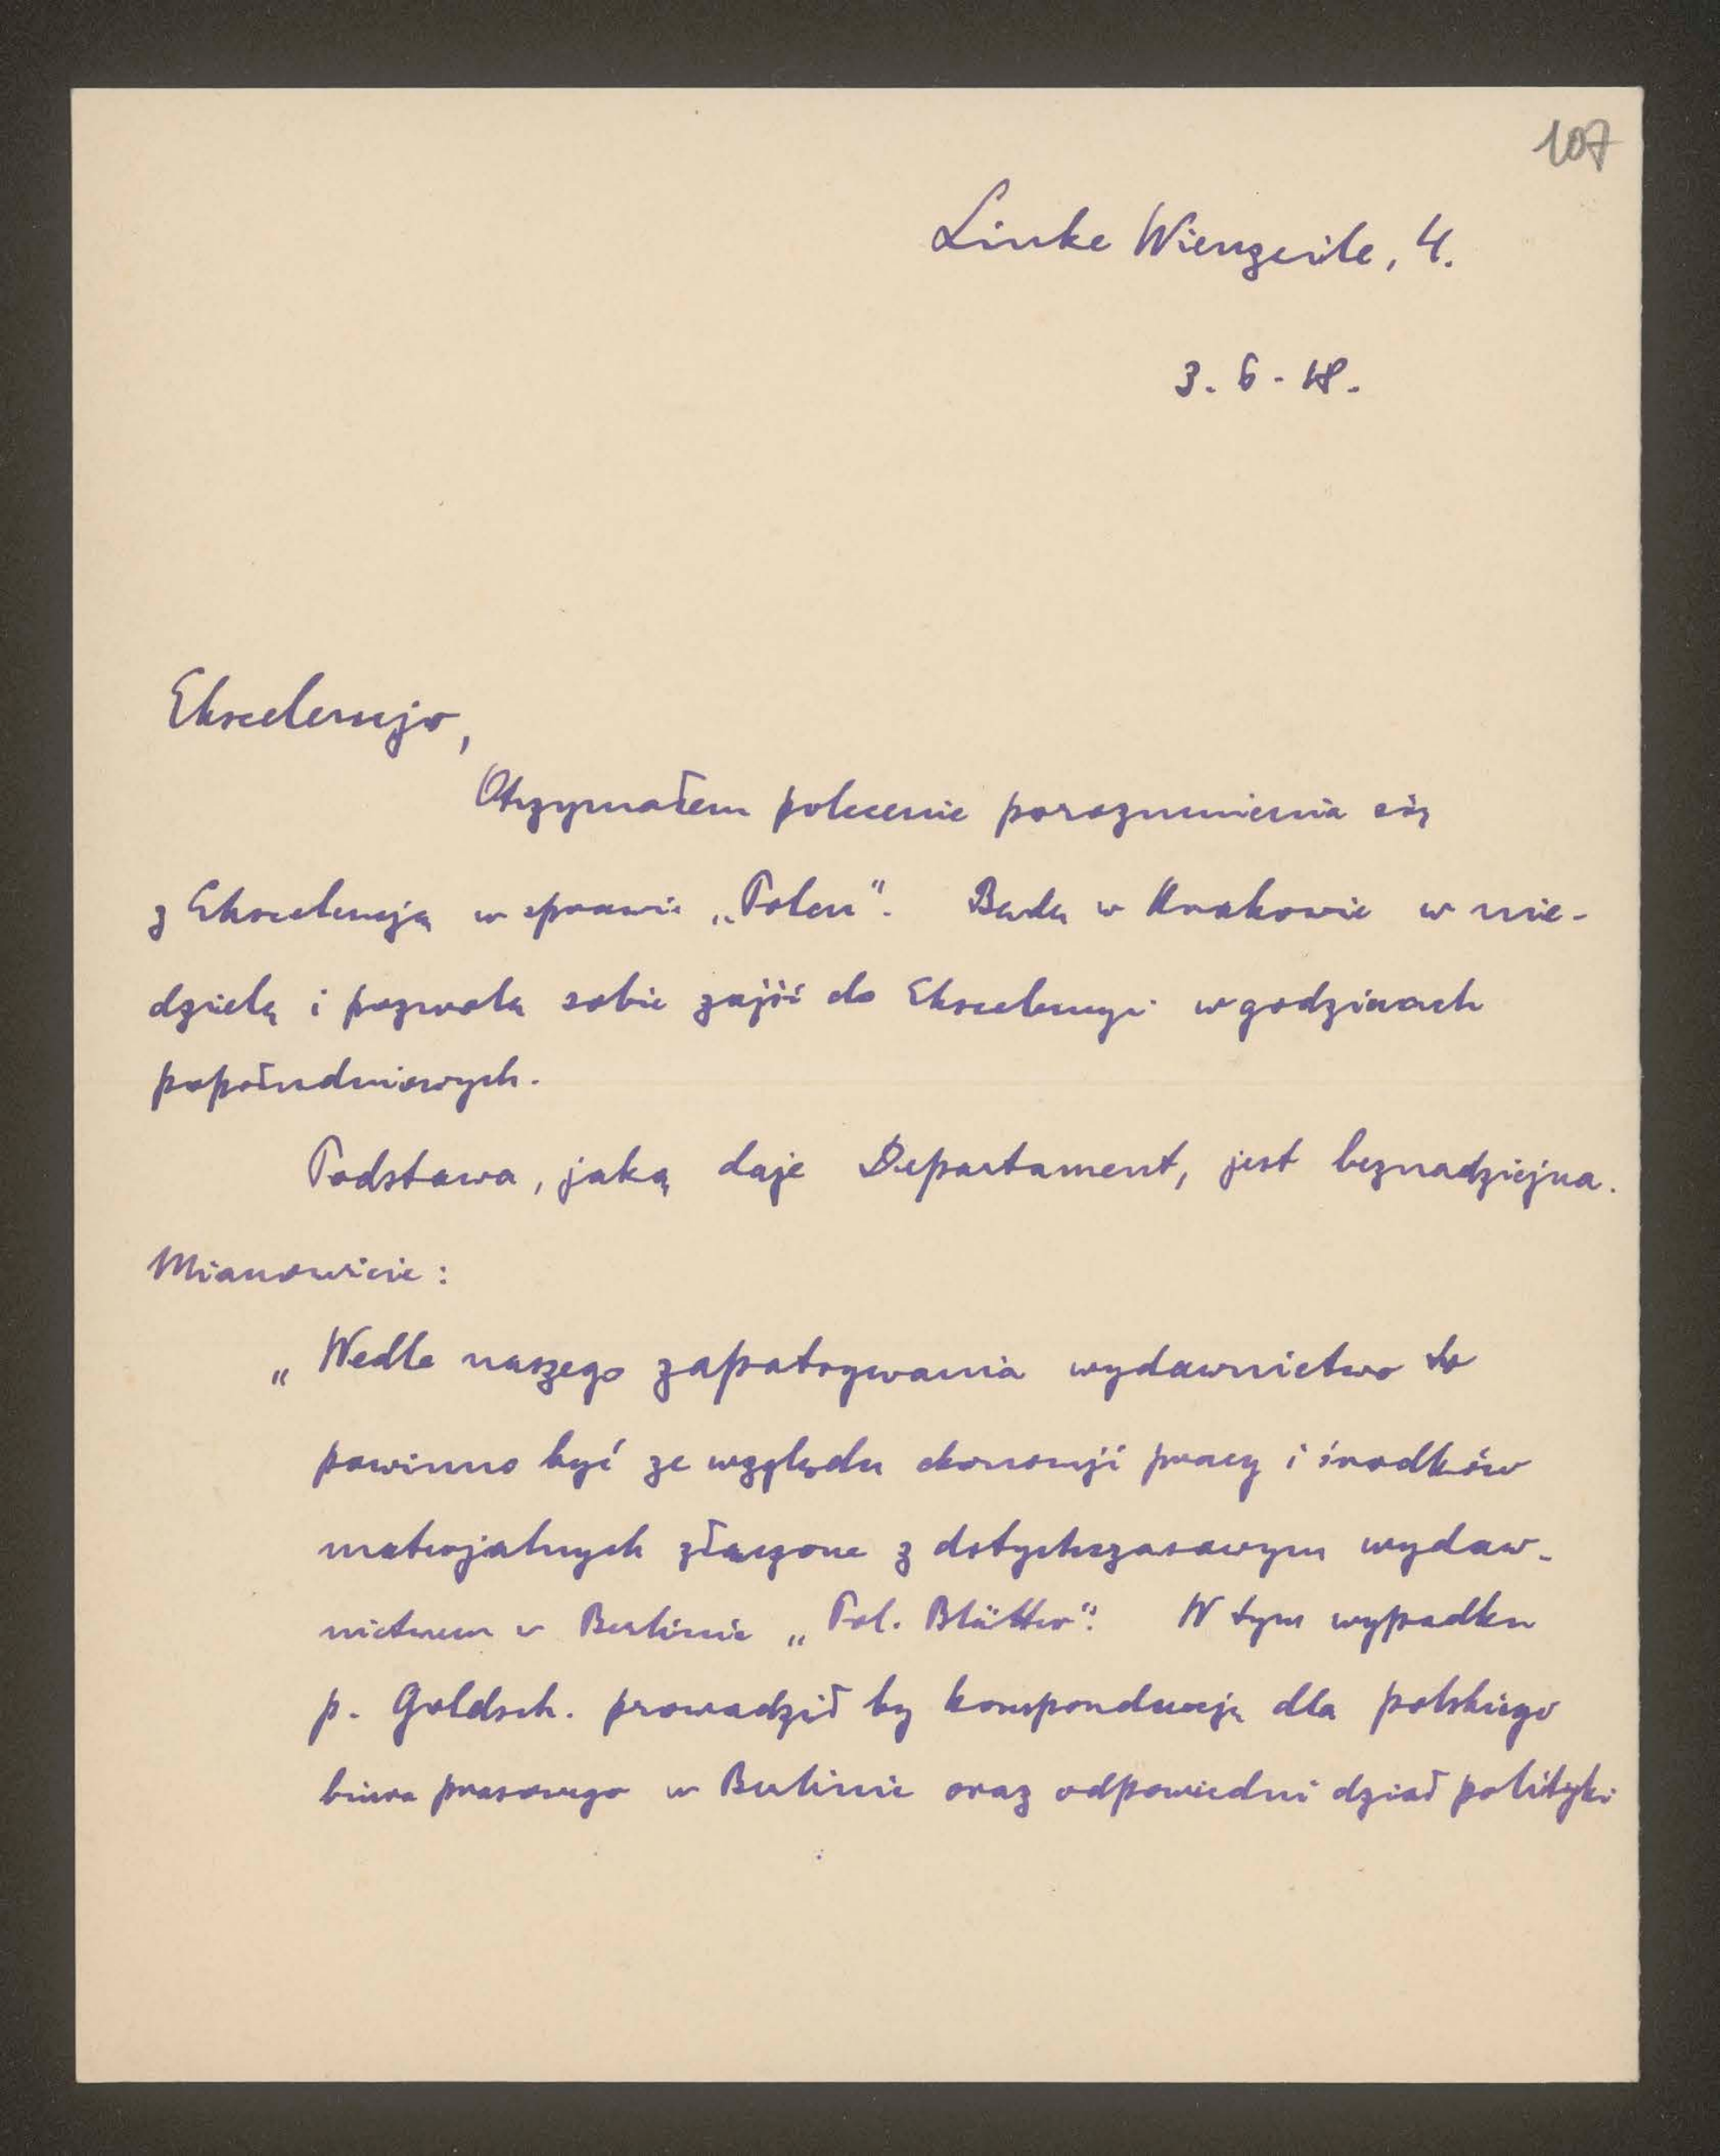 107
Linke Wienzeile, 4.
3. 6 - 18.
Ekscelencjo,
Otrzymałem polecenie porozumienia się
z Ekscelencją w sprawie „Polen". Będę w Krakowie w nie-
dzielę i pozwolę sobie zajść do Ekscelencji w godzinach
popołudniowych.
Podstawa, jaką daje Departament, jest beznadziejna.
Mianowicie:
„Wedle naszego zapatrywania wydawnictwo to
powinno być ze względu ekonomji pracy i środków
materjalnych złączone z dotychczasowym wydaw-
nictwem w Berlinie „Pol. Blätter". W tym wypadku
p. Goldsch. prowadził by korespondencję dla polskiego
biura prasowego w Berlinie oraz odpowiedni dział polityki